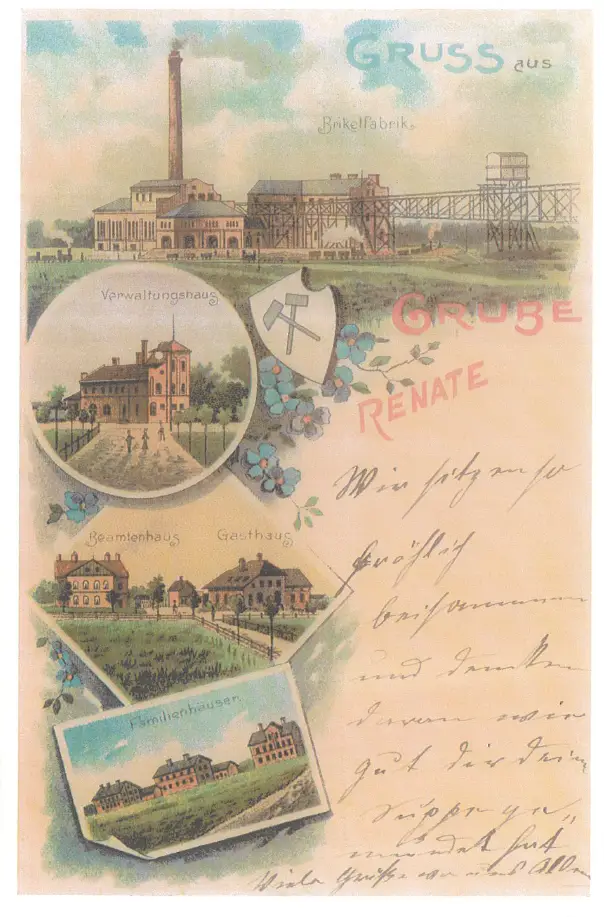 GRUSS aus
Brikettfabrik.
Verwaltungshaus
GRUBE
RENATE
Beamtenhaus Gasthaus
Familienhäuser.
Wir sitzen so
fröhlich
beisammen
und denken
daran wie
gut dir deine
Suppe ge„
mundet hat
Viele Grüße von uns Allen